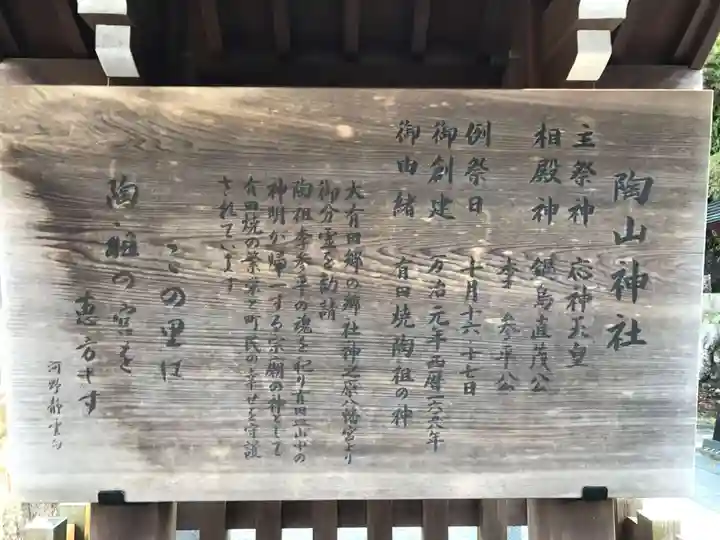 陶山神社
主祭神 応神天皇
相殿神 鍋島直茂公
李 参平公
例祭日 十月十六十七日
御創建 万治元年西暦一六五八年
御由緒 有田焼陶祖の神
大有田郷の郷社神之原八幡宮より
御分霊を勧請
陶祖李参平の魂を祀り有田皿山中の
神明が帰一する宗廟の神として
有田焼の繁栄と町民の幸せを守護
されています
この里は
陶祖の空を
恵方とす
河野静雲句